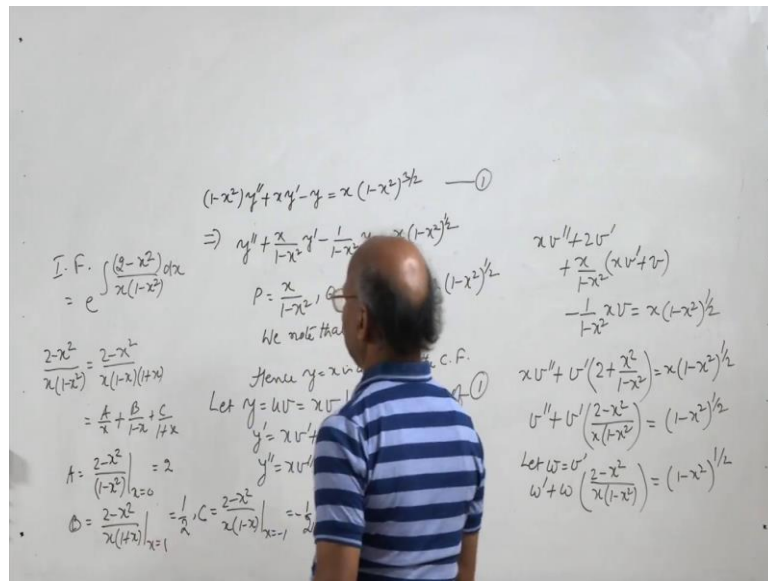 (1-x²)y″+xy′-y = x(1-x²)^{3/2} —①
⇒ y″+\frac{x}{1-x²}y′-\frac{1}{1-x²} x(1-x²)^{1/2}
P = \frac{x}{1-x²}, (1-x²)^{1/2}
We note
Hence y=x C.F.
Let y=uv=xv ①
y′=xv′+
y″=xv″
I.F.
= e^{∫\frac{(2-x²)}{x(1-x²)}dx}
\frac{2-x²}{x(1-x²)} = \frac{2-x²}{x(1-x)(1+x)}
= \frac{A}{x}+\frac{B}{1-x}+\frac{C}{1+x}
A = \frac{2-x²}{(1-x²)}|_{x=0} = 2
B = \frac{2-x²}{x(1+x)}|_{x=1} = \frac{1}{2}, C = \frac{2-x²}{x(1-x)}|_{x=-1} = -\frac{1}{2}
xv″+2v′
+\frac{x}{1-x²}(xv′+v)
-\frac{1}{1-x²}xv = x(1-x²)^{1/2}
xv″+v′(2+\frac{x²}{1-x²}) = x(1-x²)^{1/2}
v″+v′(\frac{2-x²}{x(1-x²)}) = (1-x²)^{1/2}
Let w=v′
w′+w(\frac{2-x²}{x(1-x²)}) = (1-x²)^{1/2}